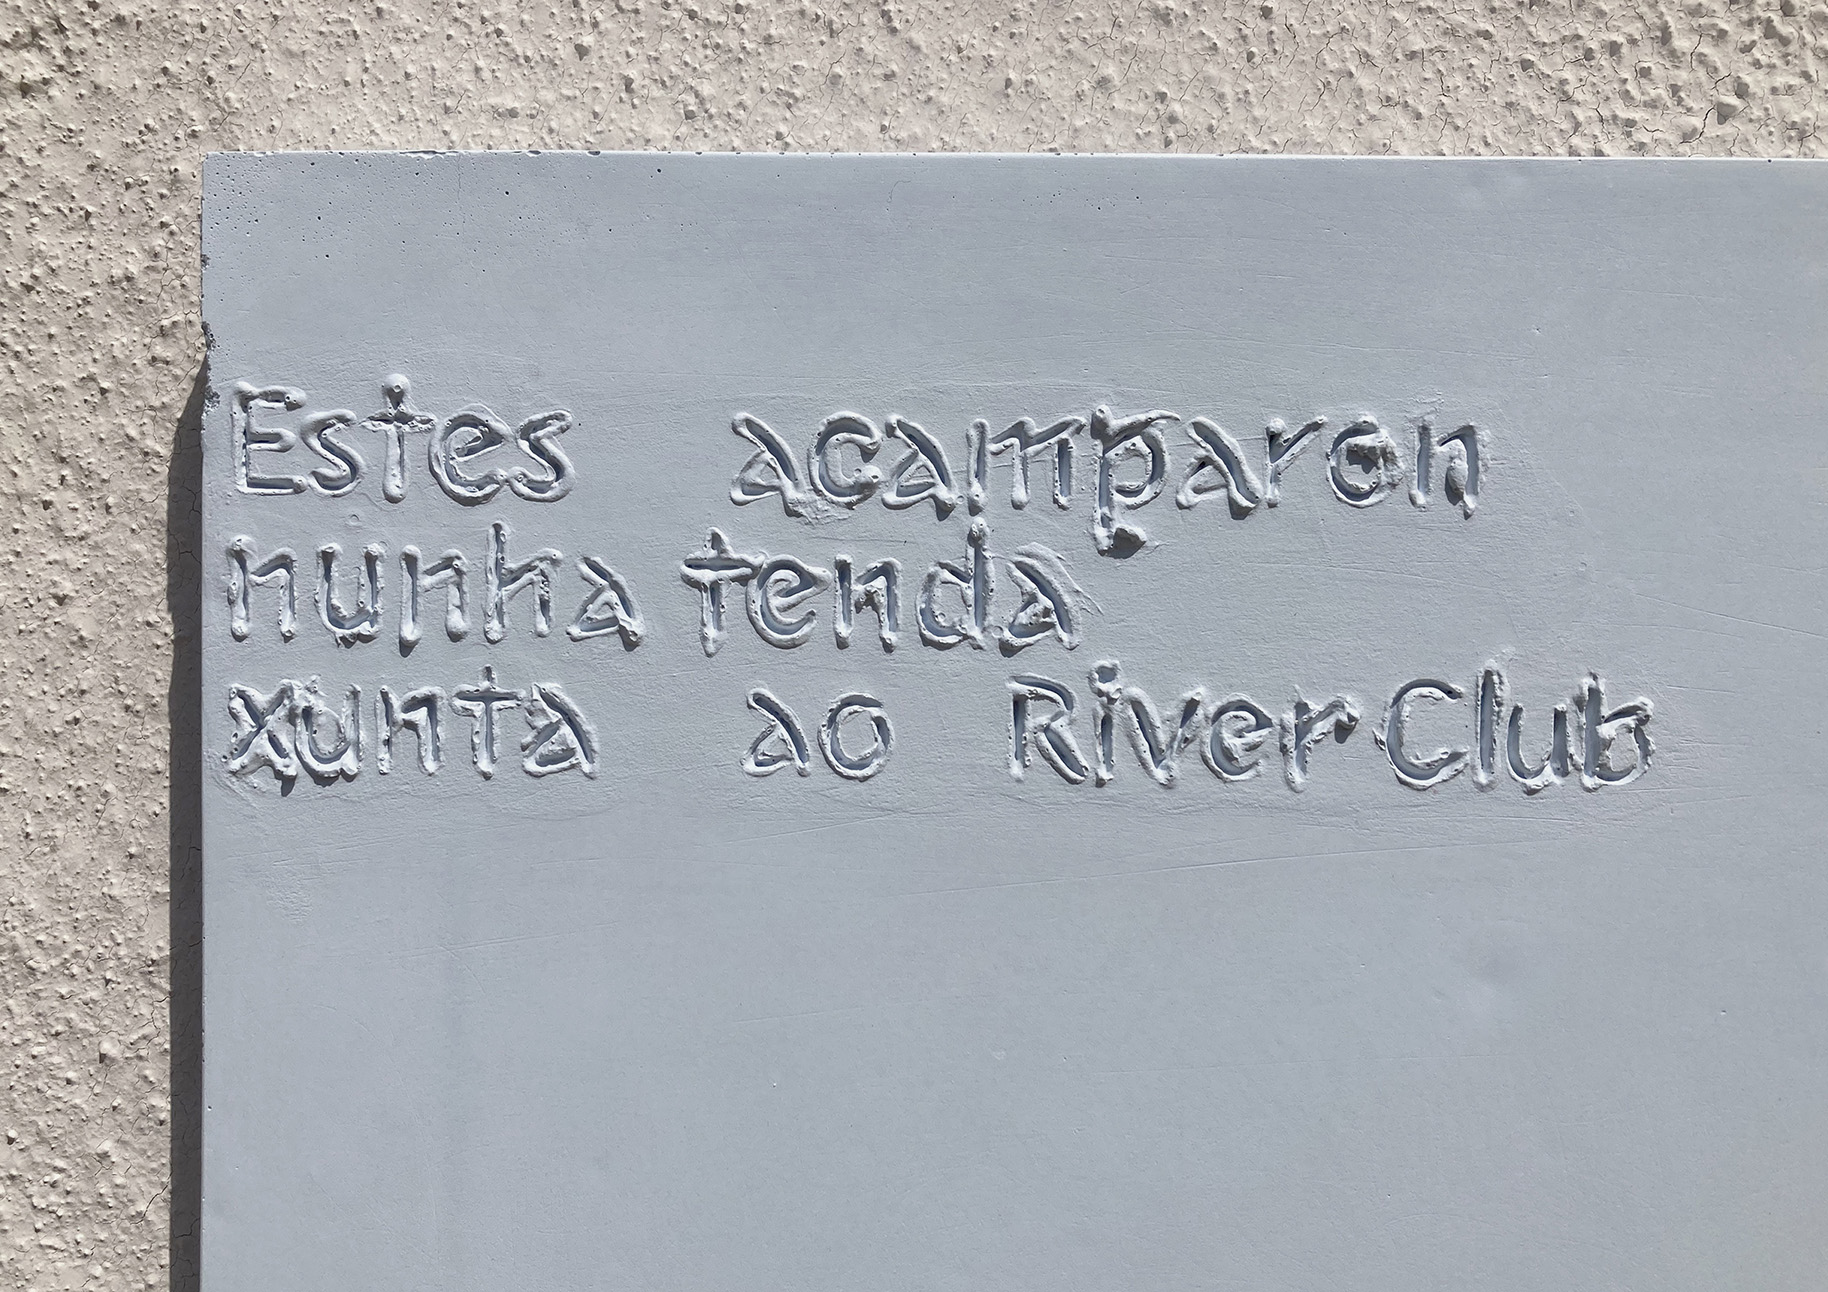 Estes acamparon
nunha tenda
xunta ao River Club